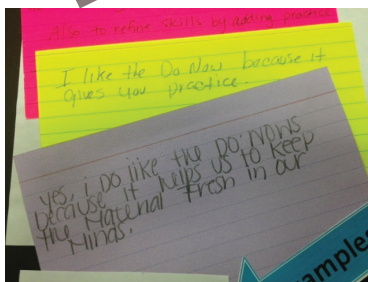 Also to refine skills by adding practice
I like the Do Now because it
gives you practice.
yes, i DO like the DO NOWS
because it helps us to keep
the Material Fresh in our
Minds.
amples